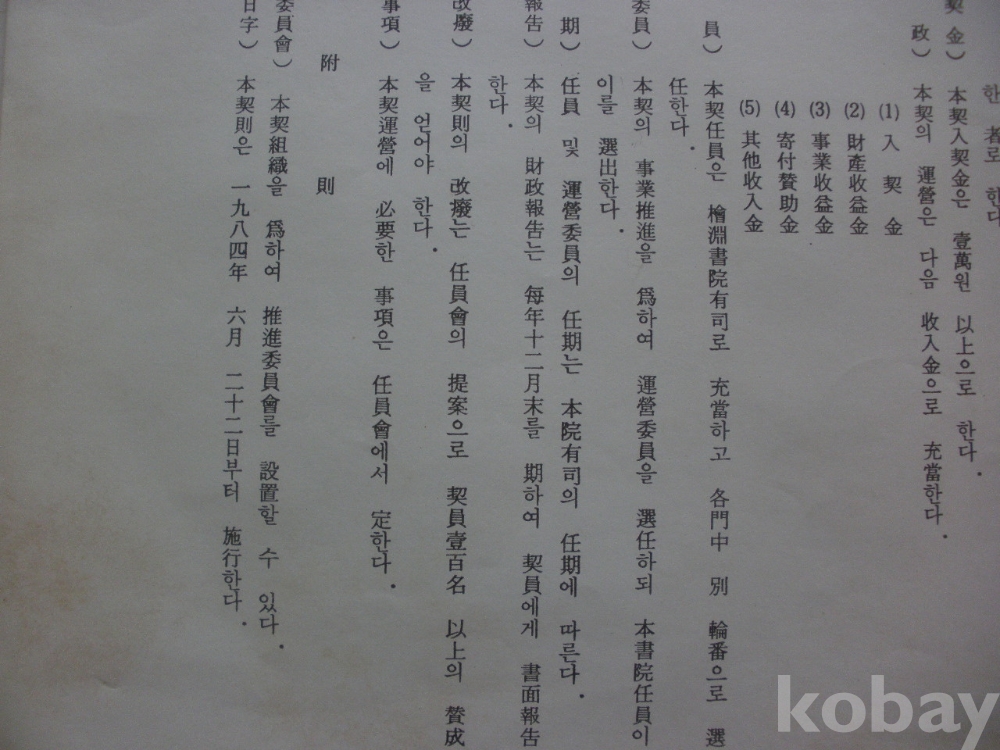 한 者로 한다.
契金) 本契入契金은 壹萬원 以上으로 한다.
政) 本契의 運營은 다음 收入金으로 充當한다.
(1) 入契金
(2) 財產收益金
(3) 事業收益金
(4) 寄付贊助金
(5) 其他收入金
員) 本契任員은 檜淵書院有司로 充當하고 各門中 別 輪番으로 選
任한다.
委員) 本契의 事業推進을 爲하여 運營委員을 選任하되 本書院任員이
이를 選出한다.
期) 任員 및 運營委員의 任期는 本院有司의 任期에 따른다.
報告) 本契의 財政報告는 每年十二月末를 期하여 契員에게 書面報告
한다.
改廢) 本契則의 改廢는 任員會의 提案으로 契員壹百名 以上의 贊成
을 얻어야 한다.
事項) 本契運營에 必要한 事項은 任員會에서 定한다.
附則
委員會) 本契組織을 爲하여 推進委員會를 設置할 수 있다.
日字) 本契則은 一九八四年 六月 二十二日부터 施行한다.
kobay